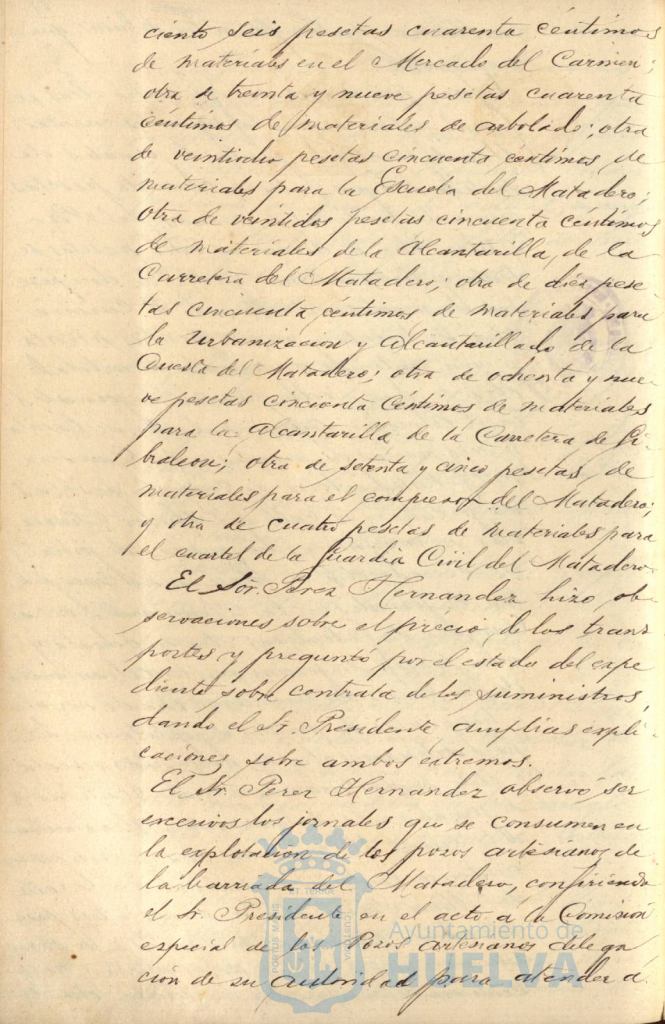 ciento seis pesetas cuarenta céntimos
de materiales en el Mercado del Carmen;
otra de treinta y nueve pesetas cuarenta
céntimos de materiales de arbolado; otra
de veintiocho pesetas cincuenta céntimos, de
materiales para la Escuela del Matadero;
otra de veintidos pesetas cincuenta céntimos
de materiales de la Alcantarilla, de la
Carretera del Matadero; otra de diez pese-
tas cincuenta céntimos de materiales para
la Urbanizacion y Alcantarillado de la
Cuesta del Matadero; otra de ochenta y nue-
ve pesetas cincuenta céntimos de materiales
para la Alcantarilla de la Carretera de Gi-
braleon; otra de setenta y cinco pesetas, de
materiales para el compresor del Matadero;
y otra de cuatro pesetas de materiales para
el cuartel de la Guardia Civil del Matadero.
El Sor. Perez Hernandez hizo ob-
servaciones sobre el precio, de los trans-
portes y preguntó por el estado del expe-
diente sobre contrata de los suministros,
dando el Sr. Presidente amplias expli-
caciones sobre ambos extremos.
El Sr. Perez Hernandez observó ser
excesivos los jornales que se consumen en
la explotacion de los pozos artesianos de
la barriada del Matadero, confiriendo
el Sr. Presidente en el acto á la Comisión
especial de los Pozos artesianos delega-
ción de su autoridad para atender á
Ayuntamiento de
HUELVA